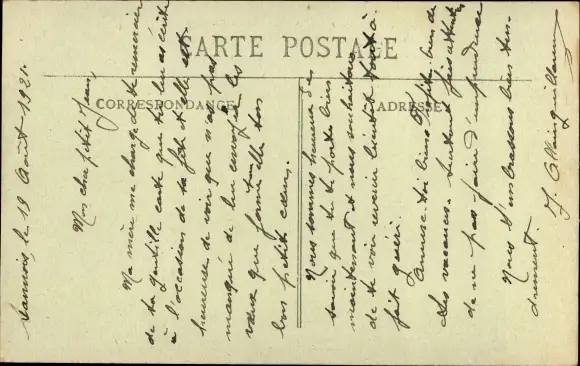 CARTE POSTALE
CORRESPONDANCE
ADRESSE
Sannois, le 19 Août 1921.
Mon cher petit Jean,
Ma mère me charge de te remercier
de ta gentille carte que tu lui as écrite
à l'occasion de sa fête et elle est
heureuse de voir que tu n'as pas
manqué de lui envoyer les
vœux que forme ton
bon petit cœur.
Nous sommes heureux de
savoir que tu te portes bien
maintenant et nous souhaitons
de te voir revenir bientôt tout à
fait guéri.
Amuse-toi bien, profite bien de
tes vacances. Surtout fais attention
de ne pas faire d'imprudence
Nous t'embrassons bien ten-
drement.